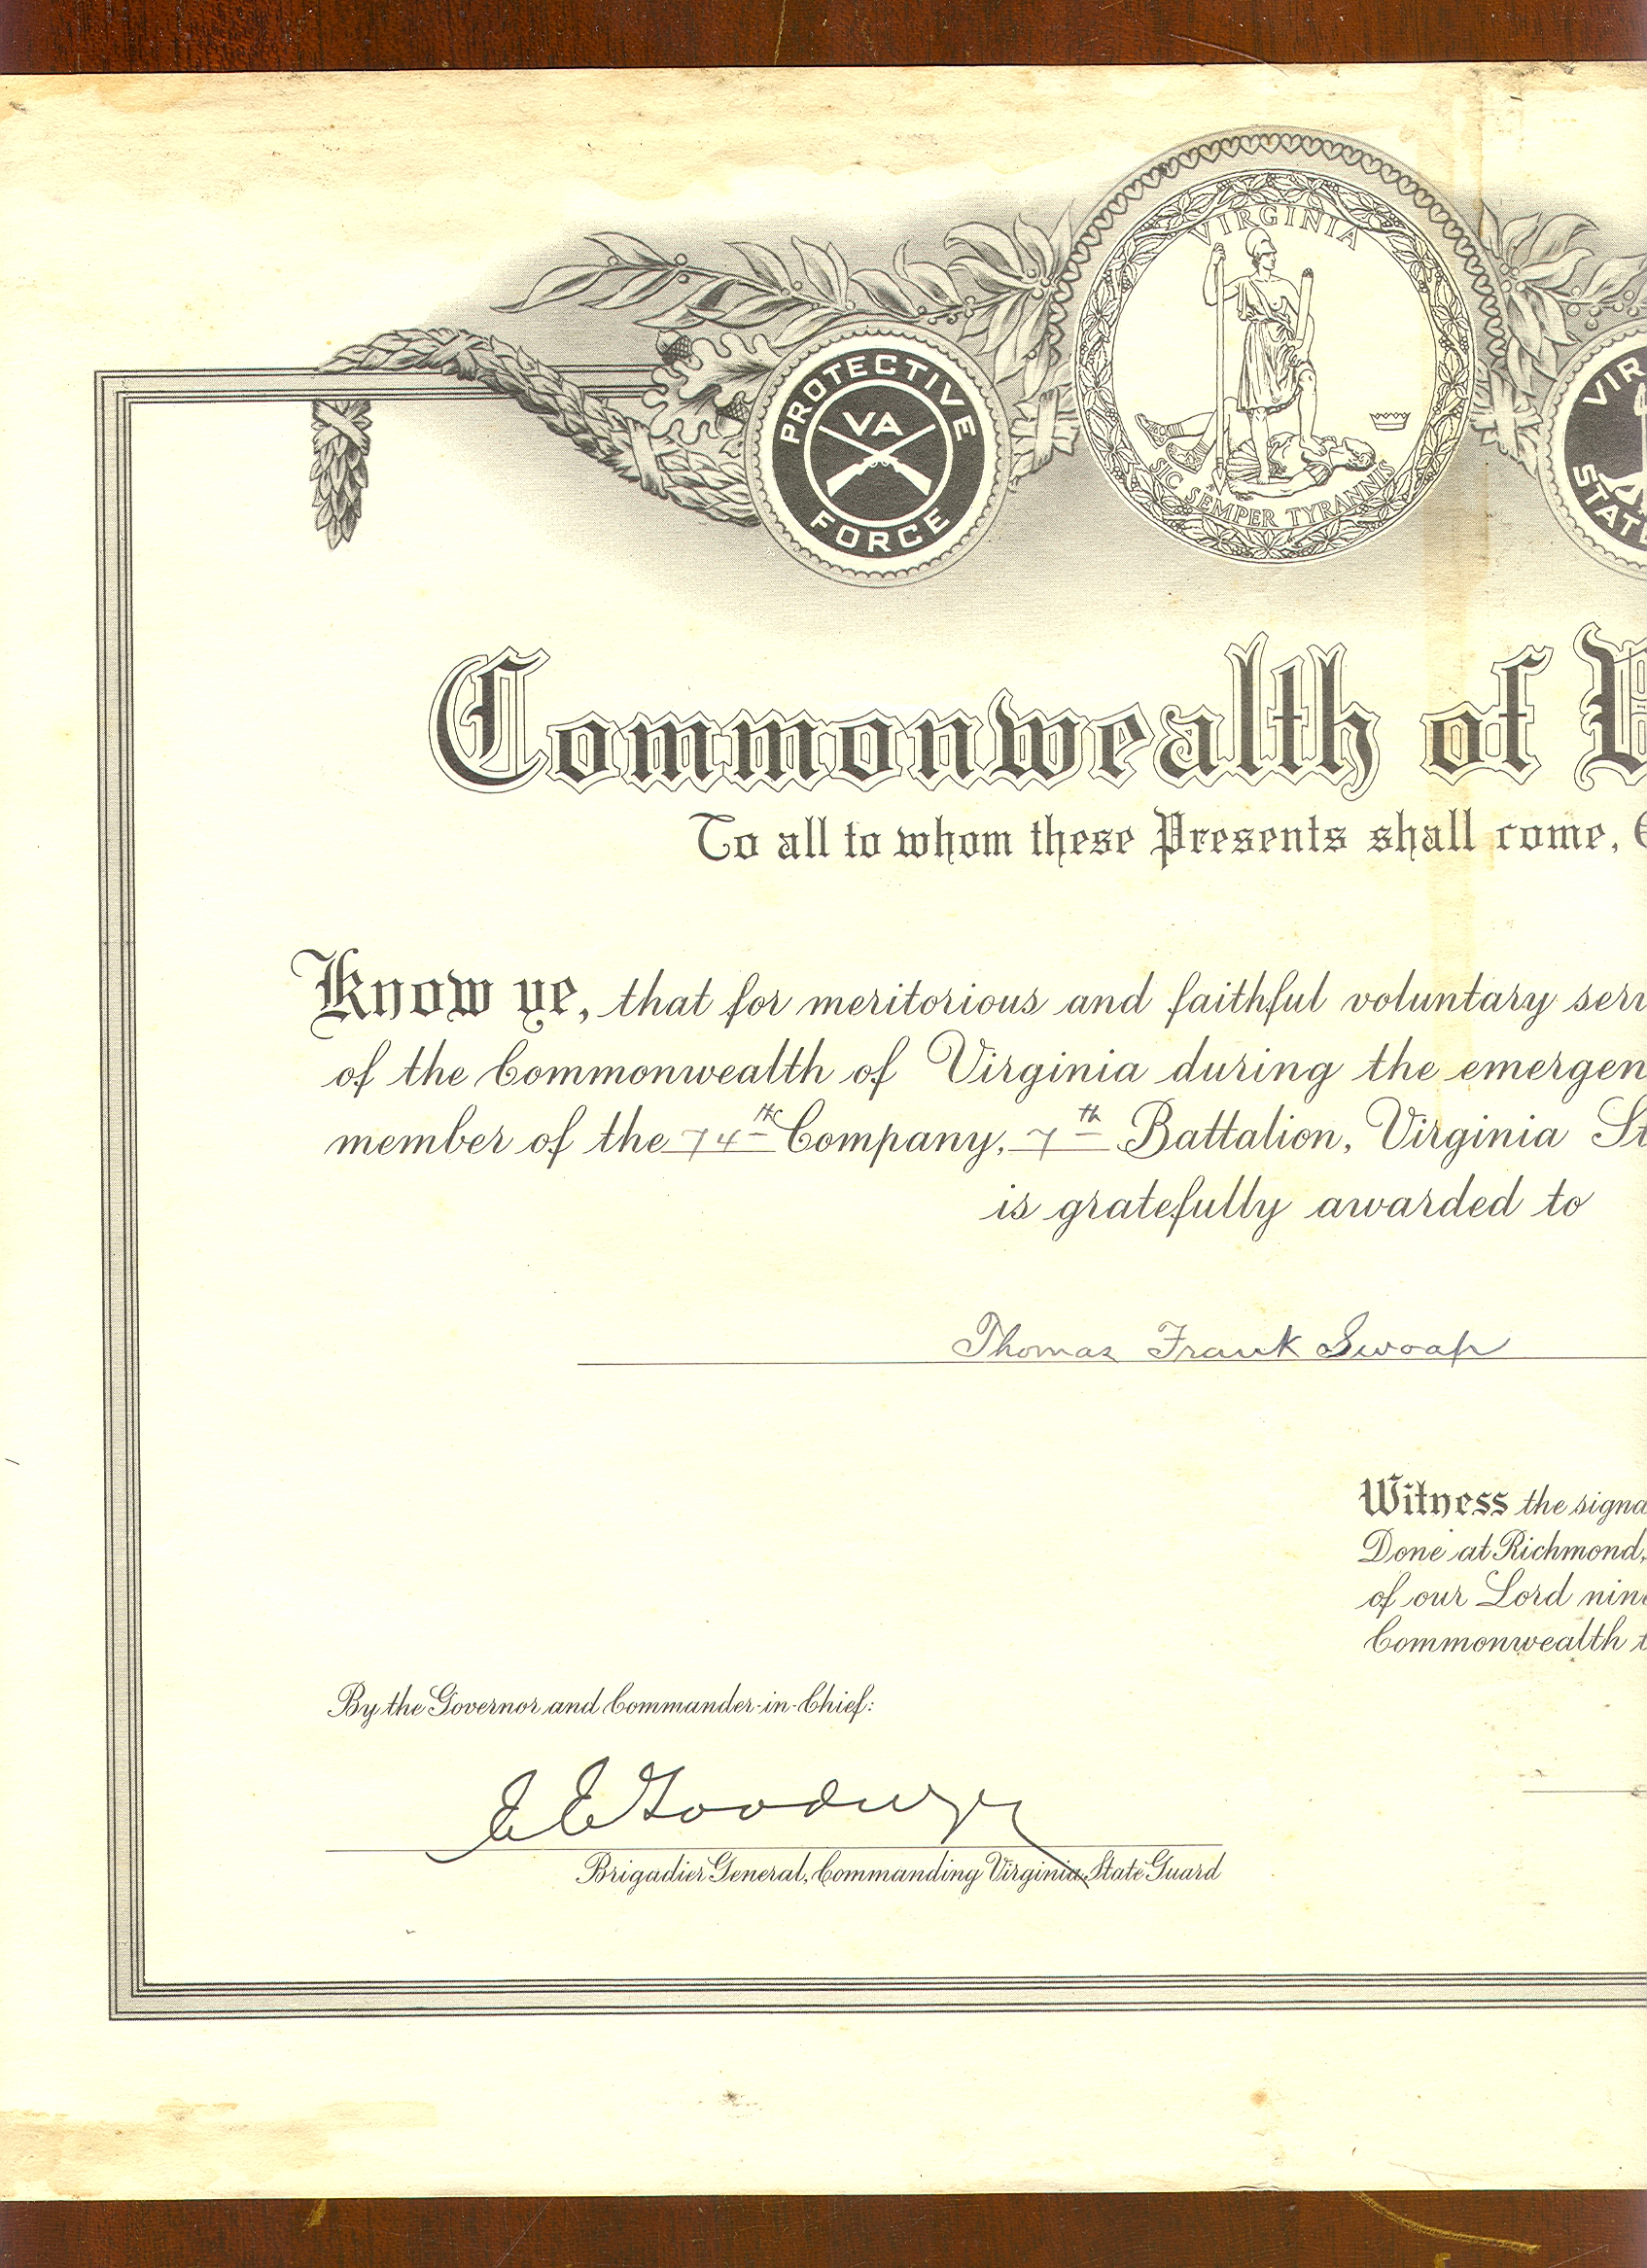 VIRGINIA
SIC SEMPER TYRANNIS
PROTECTIVE
VA
FORCE
VIR
STATE
Commonwealth of V
To all to whom these Presents shall come, G
Know ye, that for meritorious and faithful voluntary serv
of the Commonwealth of Virginia during the emergen
member of the 74th Company, 7th Battalion, Virginia St
is gratefully awarded to
Thomas Frank Swoap
Witness the signa
Done at Richmond,
of our Lord nine
Commonwealth t
By the Governor and Commander-in-Chief:
E E Goodwyn
Brigadier General, Commanding Virginia State Guard